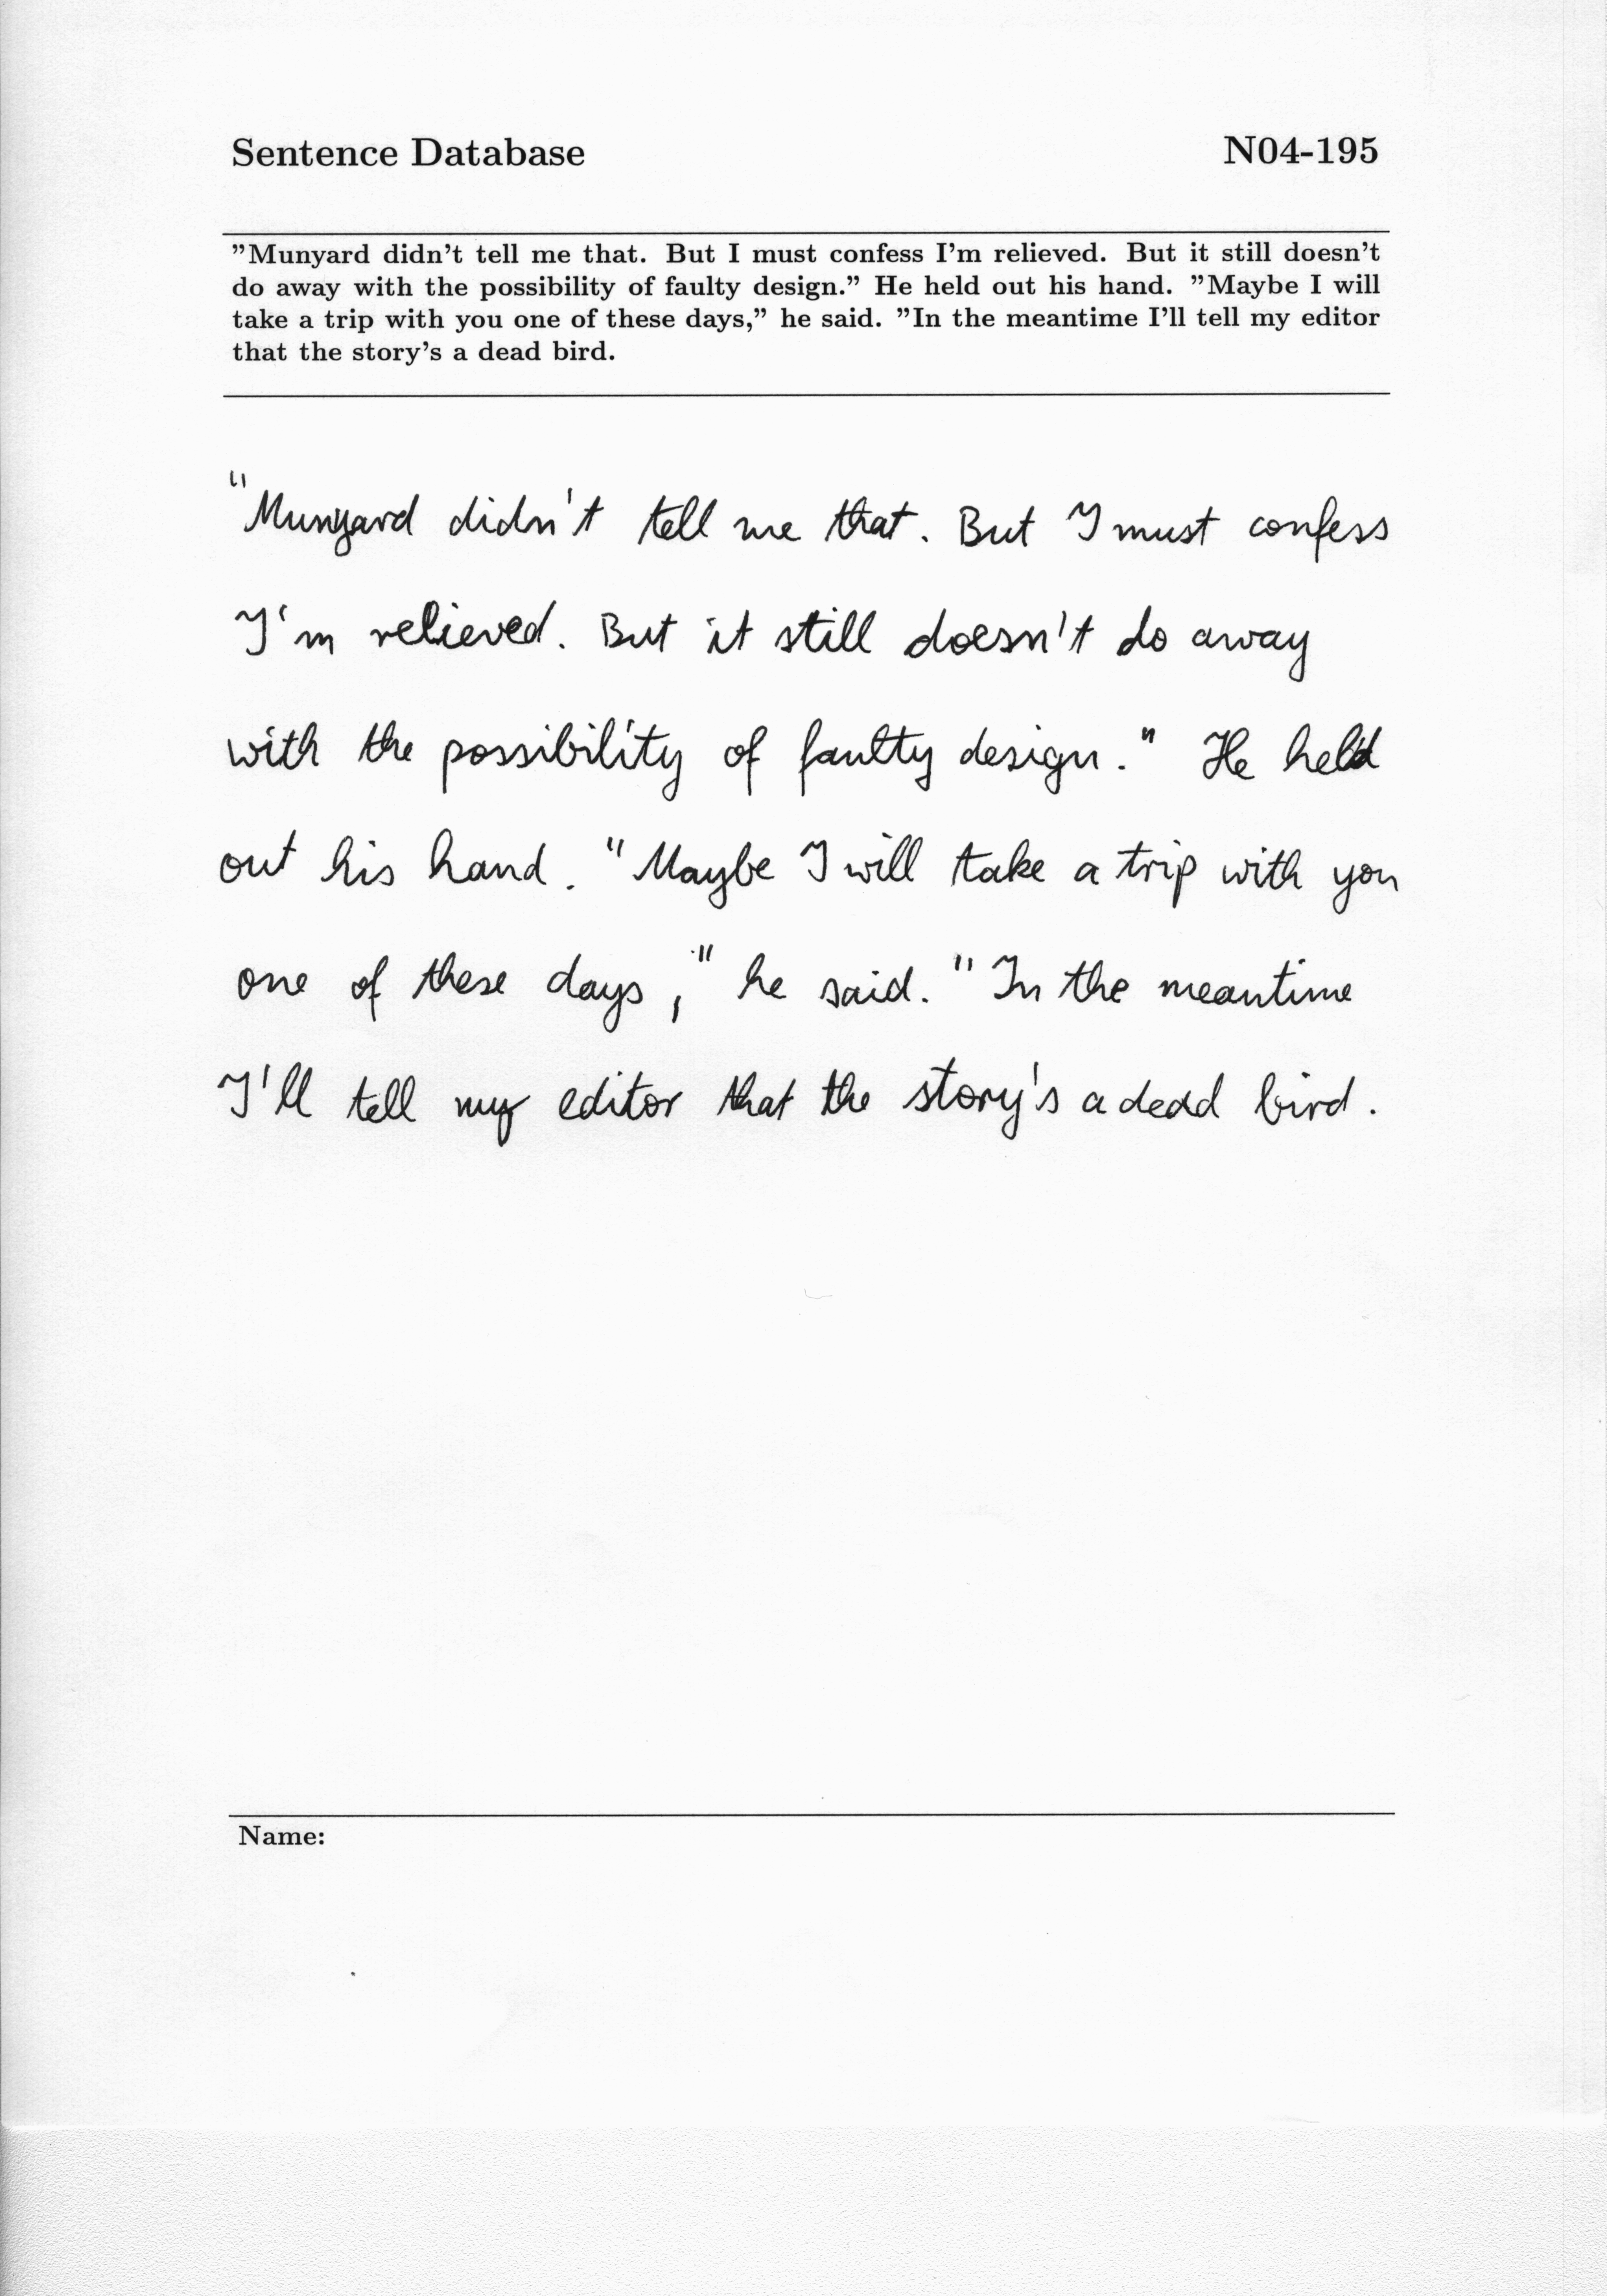 Sentence Database
N04-195
”Munyard didn’t tell me that. But I must confess I’m relieved. But it still doesn’t
do away with the possibility of faulty design.” He held out his hand. ”Maybe I will
take a trip with you one of these days,” he said. ”In the meantime I’ll tell my editor
that the story’s a dead bird.
"Munyard didn't tell me that. But I must confess
I'm relieved. But it still doesn't do away
with the possibility of faulty design." He held
out his hand. "Maybe I will take a trip with you
one of these days," he said. "In the meantime
I'll tell my editor that the story's a dead bird.
Name: